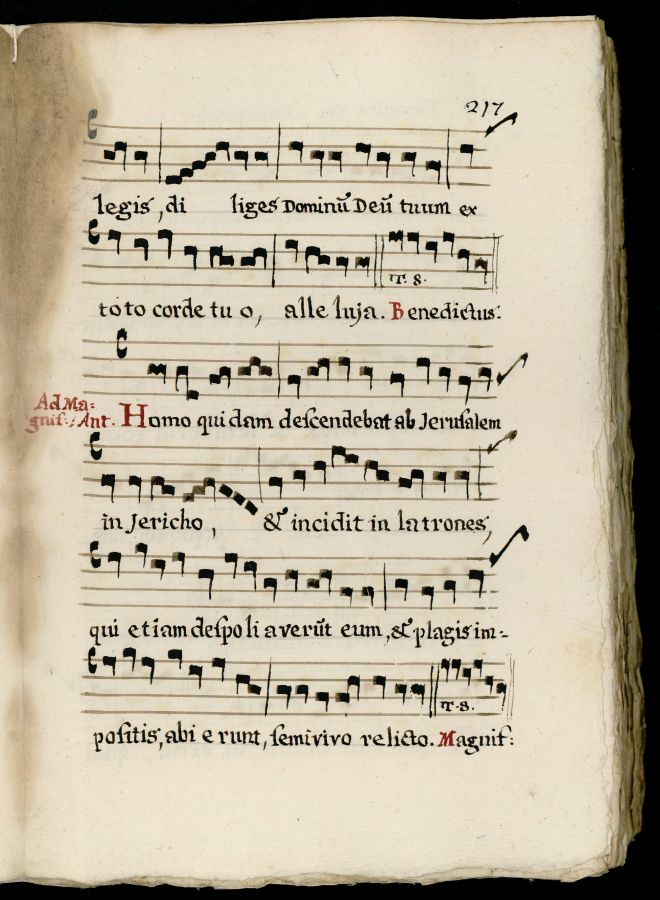 217
legis, di liges Dominū Deū tuum ex
T. 8.
toto corde tu o, alle luja. Benedictus:
Ad Ma=
gnif: Ant. Homo qui dam deſcendebat ab Jeruſalem
in Jericho, & incidit in latrones,
qui etiam deſpo li a verūt eum, & plagis im-
T. 8.
poſitis, abi e runt, ſemivivo relicto. Magnif: